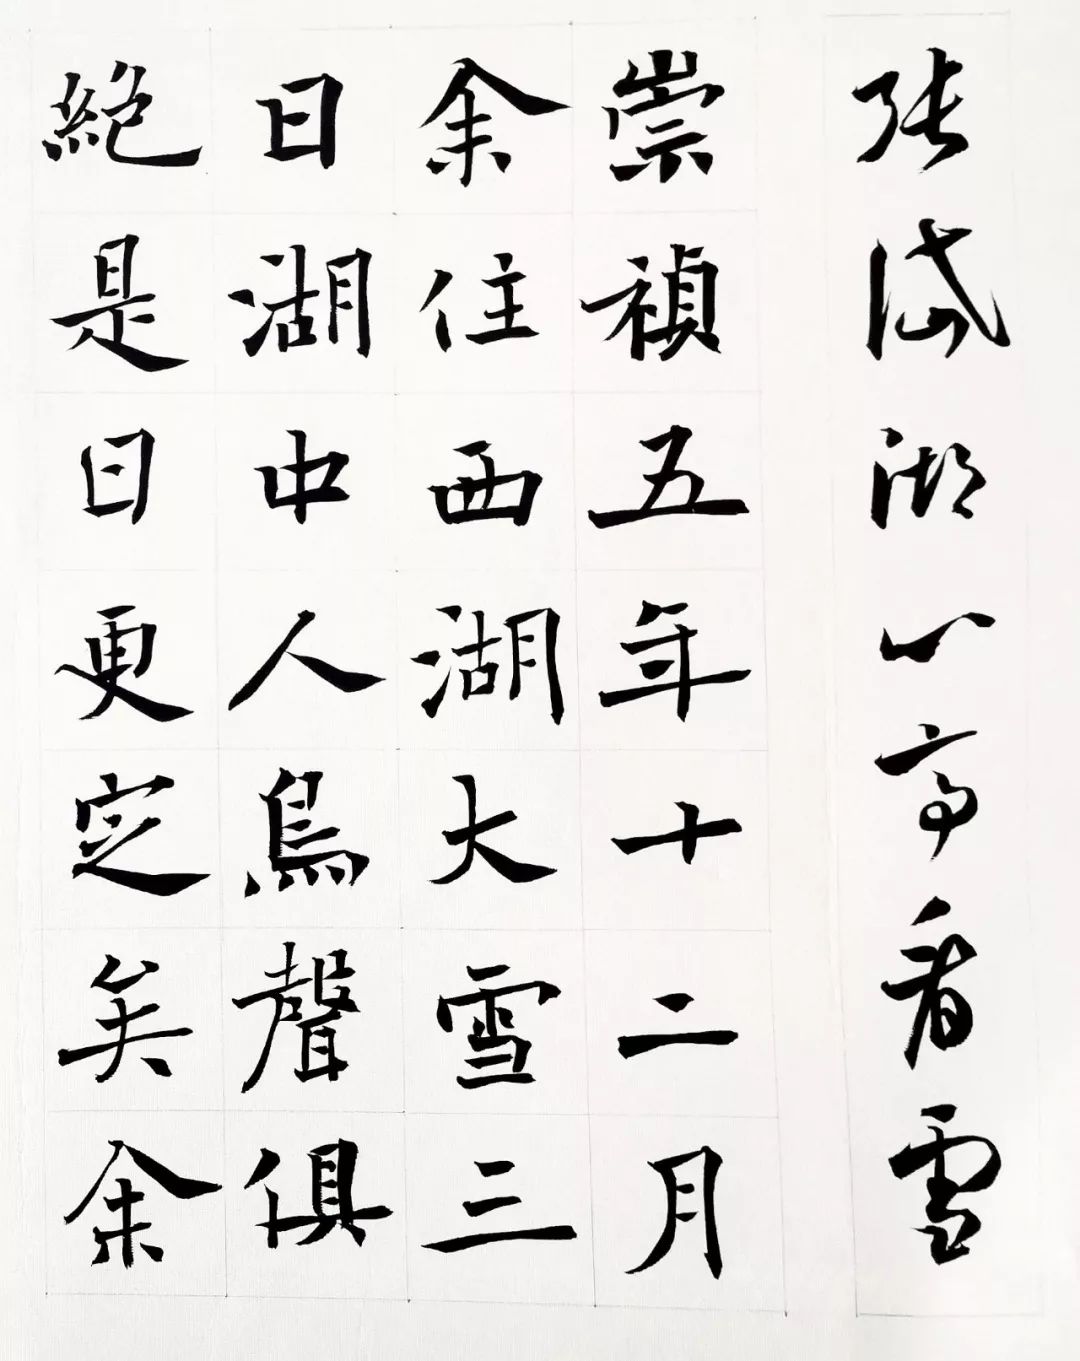 张岱湖心亭看雪
崇禎五年十二月
余住西湖大雪三
日湖中人鳥聲俱
絕是日更定矣余